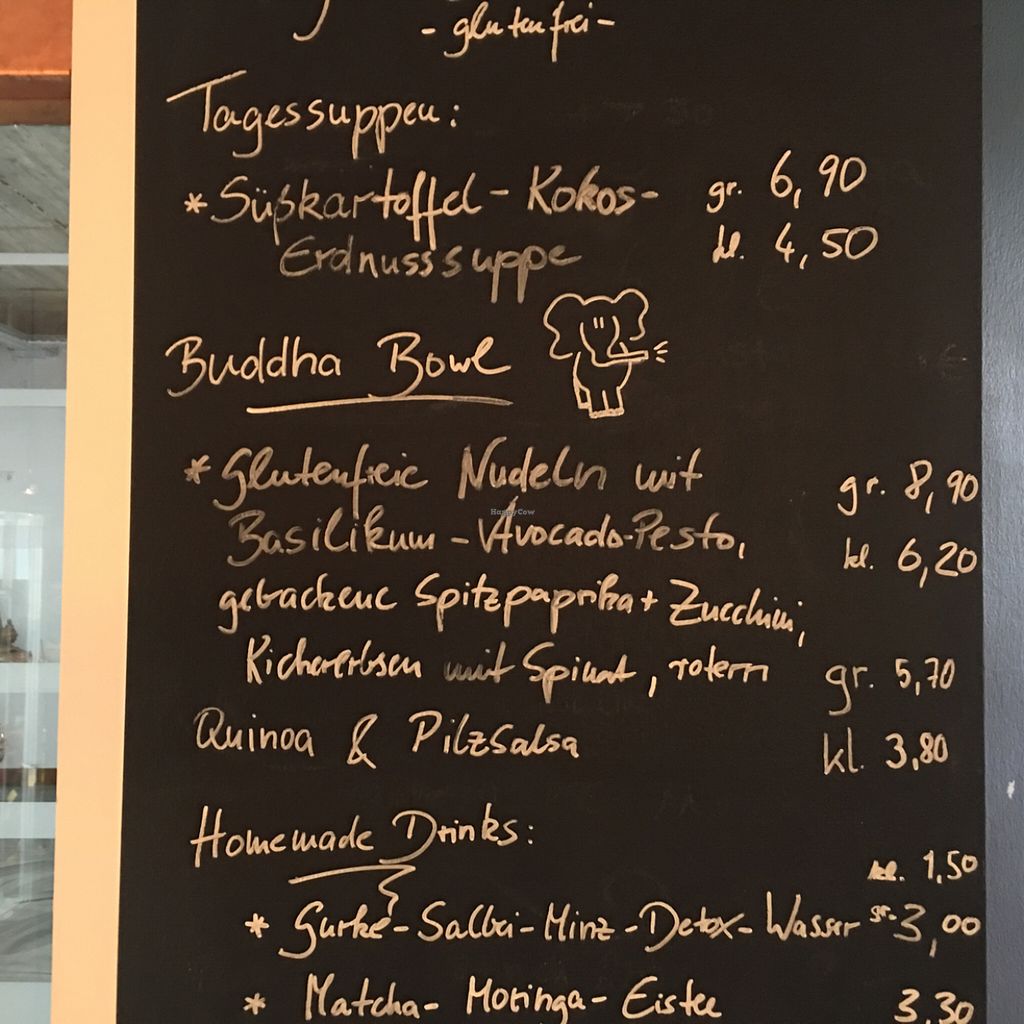 -glutenfrei-
Tagessuppen:
*Süßkartoffel-Kokos- gr. 6,90
Erdnusssuppe kl. 4,50
Buddha Bowl
*Glutenfreie Nudeln mit gr. 8,90
HappyCow
Basilikum-Avocado-Pesto, kl. 6,20
gebackene Spitzpaprika+Zucchini,
Kichererbsen mit Spinat, rotem gr. 5,70
Quinoa & Pilzsalsa kl. 3,80
Homemade Drinks:
kl. 1,50
* Gurke-Salbei-Minz-Detox-Wasser gr. 3,00
* Matcha-Moringa-Eistee 3,30